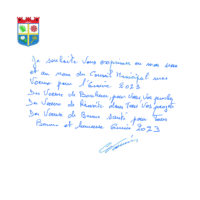 Je souhaite vous exprimer en mon nom
et au nom du Conseil Municipal nos
Voeux pour l'Année 2023
Des Voeux de Bonheur pour Vous Vos proches
Des Voeux de Réussite dans Tous Vos projets
Des Voeux de Bonne Santé pour Tous
Bonne et heureuse Année 2023